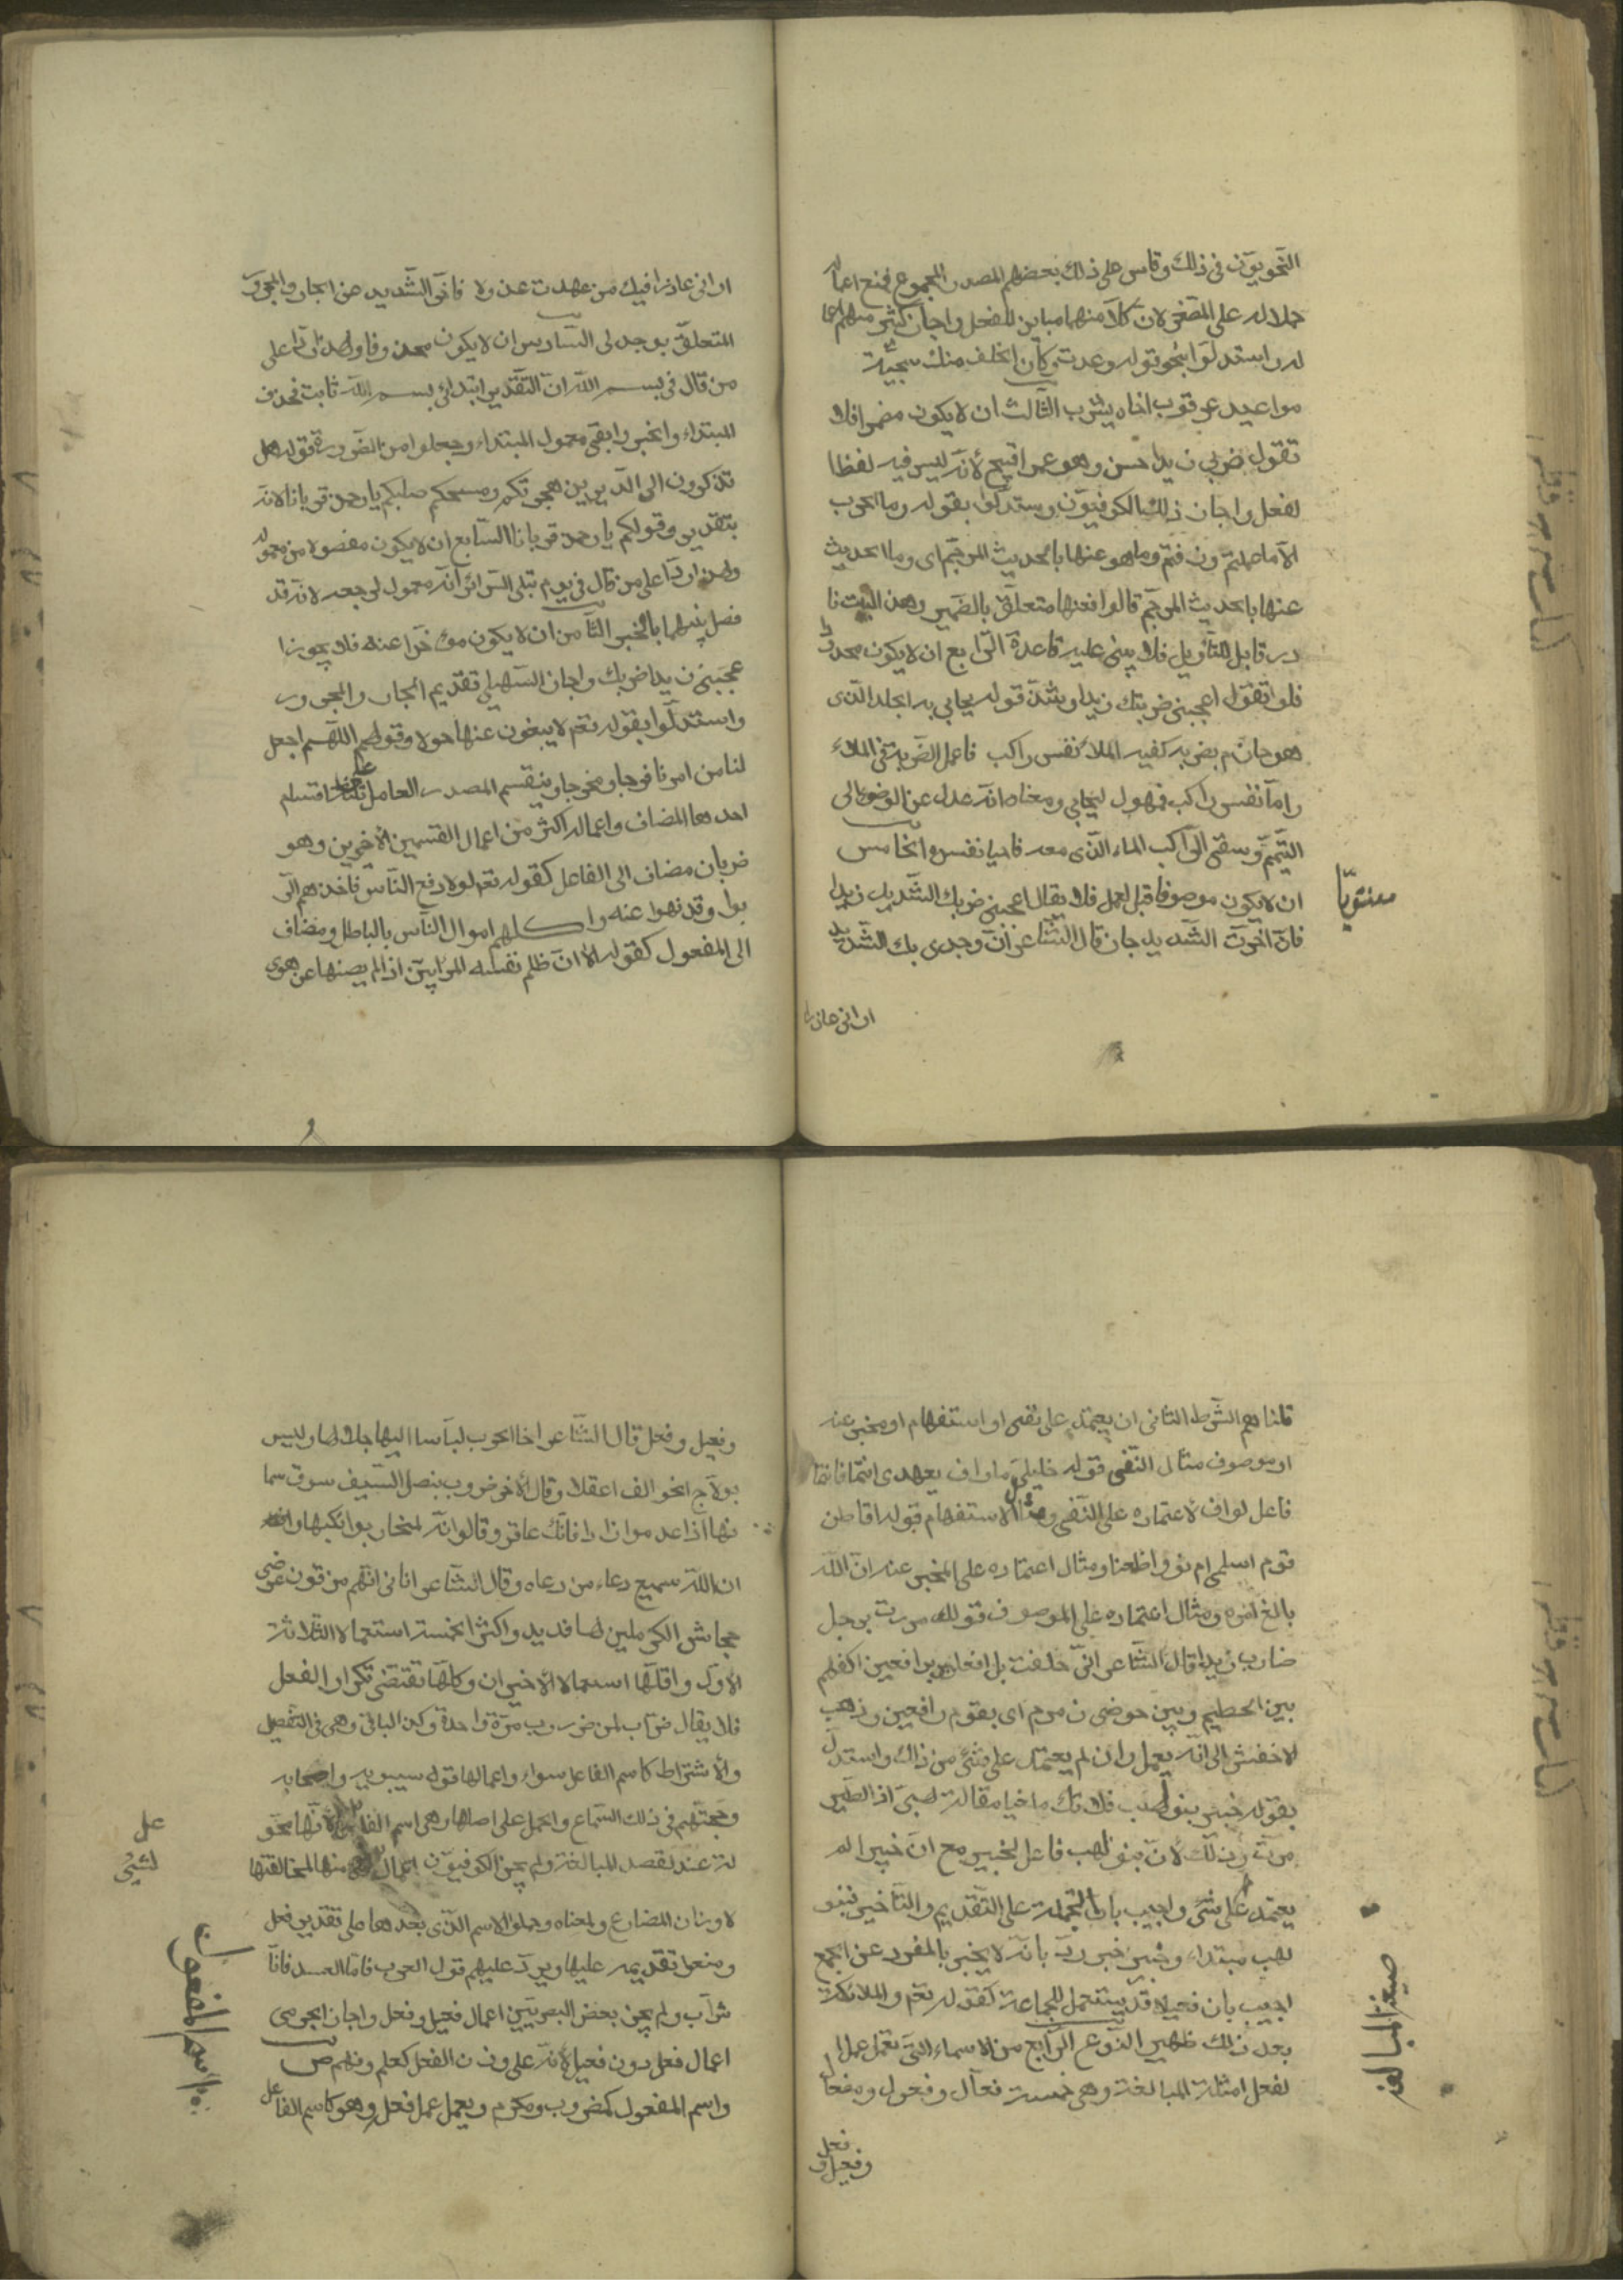 النحويون في ذلك وقاس على ذلك بعضهم المصدر المجموع فمنع اعماله
حملا له على المصغر لان كلا منهما مباين للفعل واجاز كثير منهم اعما
له واستدلوا بنحو قوله وعدت وكان الخلف منك سجية
مواعيد عرقوب اخاه بيثرب الثالث ان لا يكون مضمرا فلا
تقول ضربي زيدا حسن وهو عمرا قبيح لانه ليس فيه لفظ ا
لفعل واجاز ذلك الكوفيون وستدلوا بقوله وما الحرب
الا ما علمتم وذقتم وما هو عنها بالحديث المرجم اى وما الحديث
عنها بالحديث المرجم قالوا فعنها متعلق بالضمير وهذا البيت نا
در قابل للتأويل فلا يبنى عليه قاعدة الرابع ان لا يكون محدودا
فلو تقول اعجبنى ضربتك زيدا وشذ قوله يحايي به الجلد الذى
هو حازم بضربة كفيه الملا نفس راكب فاعمل الضربة في الملاء
واما نفس راكب فمفعول ليحايي ومعناه انه عدل عن الوضوء الى
التيمم وسقى الراكب الماء الذى معه فاحيا نفسه والخامس
ان لا يكون موصوفا قبل العمل فلا يقال اعجبنى ضربك الشديد زيدا
فان اخرت الشديد جاز قال الشاعر ان وجدى بك الشديد
ارانى عاذرا
ارانى عاذرا فيك من عهدت عذولا فاخر الشديد عن الجار والمجرور
المتعلق بوجدى السادس ان لا يكون محذوفا ولهذا ردوا على
من قال في بسم الله ان التقدير ابتدائى بسم الله ثابت فحذف
المبتداء والخبر وابقى معمول المبتداء وجعلوا من الضرورة قوله هل
تذكرون الى الديرين هجرتكم ومسحكم صلبكم يا رحمن قربانا لانه
بتقدير وقولكم يا رحمن قربانا السابع ان لا يكون مفصولا من معموله
ولهذا ردوا على من قال في يوم تبلى السرائر انه معمول لرجعه لانه قد
فصل بينهما بالخبر الثامن ان لا يكون مؤخرا عنه فلا يجوز ا
عجبنى زيدا ضربك واجاز السهيلي تقديم الجار والمجرور
واستدلوا بقوله تعم لا يبغون عنها حولا وقولهم اللهم اجعل
لنا من امرنا فرجا ومخرجا وينقسم المصدر العامل على ثلثة اقسام
احدها المضاف واعماله اكثر من اعمال القسمين الأخرين وهو
ضربان مضاف الى الفاعل كقوله تعم لولا دفع الناس فاخذهم الر
بوا وقد نهوا عنه واكلهم اموال الناس بالباطل ومضاف
الى المفعول كقوله الا ان ظلم نفسه المرء بين اذا لم يصنها عن هوى
قلنا هم الشرط الثانى ان يعتمد على نفى او استفهام او مخبر عنه
او موصوف مثال النفى قوله خليلى ما واف بعهدى انتما فانتما
فاعل لواف لاعتماده على النفى ومثال الاستفهام قوله اقاطن
قوم اسلمى ام نووا ظعنا ومثال اعتماده على المخبر عنه ان الله
بالغ امره ومثال اعتماده على الموصوف قولك مررت برجل
ضارب زيدا قال الشاعر انى حلفت برافعين اكفهم
بين الحطيم وبين حوضى زمزم اى بقوم رافعين وذهب
الاخفش الى انه يعمل وان لم يعتمد على شئ من ذلك واستدل
بقوله خبير بنو لهب فلا تك ملغيا مقالة لهبى اذا الطير
مرت وذلك لان بنو لهب فاعل لخبير مع ان خبيرا لم
يعتمد على شئ واجيب بانا نحمله على التقديم والتأخير فبنو
لهب مبتداء وخبير خبر ورد بانه لا يخبر بالمفرد عن الجمع
اجيب بان فعيلا قد يستعمل للجماعة كقوله تعم والملائكة
بعد ذلك ظهير النوع الرابع من الاسماء التى تعمل عمل ا
لفعل امثلة المبالغة وهي خمسة فعال وفعول ومفعال
فعل
وفعيل و
صيغ المبالغة
وفعيل وفعل قال الشاعر اخا الحرب لباسا اليها جلالها وليس
بولاج الخوالف اعقلا وقال الاخر ضروب بنصل السيف سوق سما
نها اذا عدموا زادا فانك عاقر وقالوا انه لمنحار بوائكها والله
ان الله سميع دعاء من دعاه وقال الشاعر اتانى انهم مزقون عرضى
جحاش الكرملين لها فديد واكثر الخمسة استعمالا الثلاثة
الاول واقلها استعمالا الاخيران وكلها تقتضى تكرار الفعل
فلا يقال ضراب لمن ضرب مرة واحدة وكذا الباقى وهي في التفصيل
والاشتراط كاسم الفاعل سواء واعمالها قول سيبويه واصحابه
وحجتهم في ذلك السماع والحمل على اصلها وهي اسم الفاعل لانها محو
لة عنه لقصد المبالغة ولم يجز الكوفيون اعمال شئ منها لمخالفتها
لاوزان المضارع ولمعناه وحملوا الاسم الذى بعدها على تقدير فعل
ومنعوا تقديمه عليها ويرد عليهم قول العرب فاما العسل فانا
شراب ولم يجز بعض البصريين اعمال فعيل وفعل واجاز الجرمى
اعمال فعل دون فعيل لانه على وزن الفعل كعلم وفهم ص
واسم المفعول كمضروب ومكرم ويعمل عمل فعله وهو كاسم الفاعل
عل
لشئ
اسم المفعول